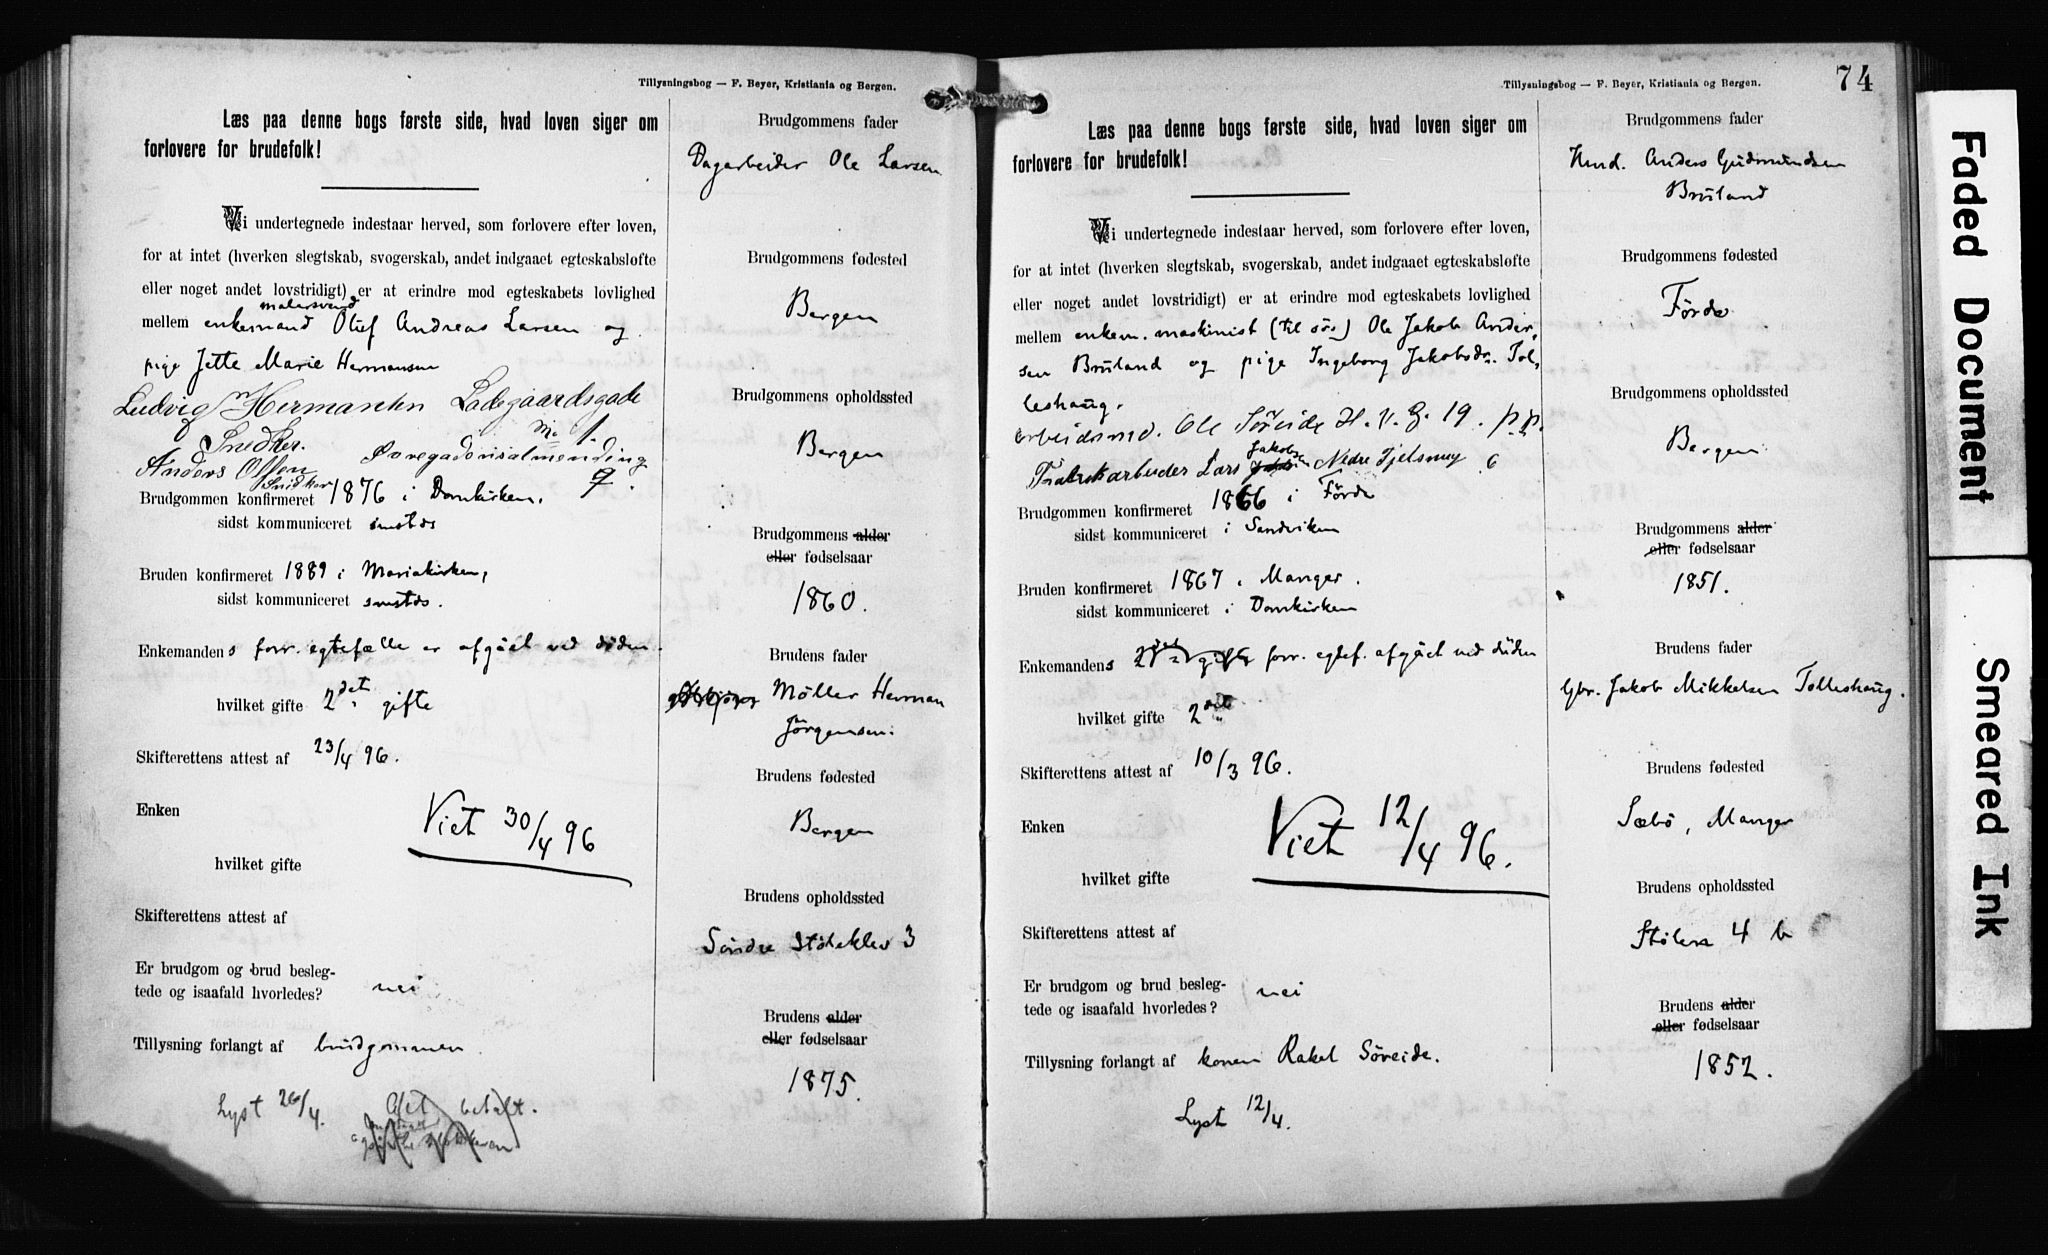 Tillysningsbog — F. Beyer, Kristiania og Bergen.
Læs paa denne bogs første side, hvad loven siger om
forlovere for brudefolk!
Vi undertegnede indestaar herved, som forlovere efter loven,
for at intet (hverken slegtskab, svogerskab, andet indgaaet egteskabsløfte
eller noget andet lovstridigt) er at erindre mod egteskabets lovlighed
malersvend
mellem enkemand Oluf Andreas Larsen og
pige Jette Marie Hermansen
Ludvig Hermansen Ladegaardsgade
Snedker. No 1.
Anders Olsen Øvregadensalmending
Snidker 9.
Brudgommen konfirmeret 1876 i Domkirken.
sidst kommuniceret smstds
Bruden konfirmeret 1889 i Mariakirken,
sidst kommuniceret smstds.
Enkemandens forr. egtefælle er afgået ved døden.
hvilket gifte 2det gifte
Skifterettens attest af 23/4 96.
Enken
Viet 30/4 96
hvilket gifte
Skifterettens attest af
Er brudgom og brud besleg-
tede og isaafald hvorledes? nei
Tillysning forlangt af brudgommen
Lyst 26/4. Alt betalt.
Brudgommens fader
Dagarbeider Ole Larsen
Brudgommens fødested
Bergen
Brudgommens opholdssted
Bergen
Brudgommens alder
eller fødselsaar
1860.
Brudens fader
Møller Herman
Jörgensen.
Brudens fødested
Bergen
Brudens opholdssted
Söndre Stöleklev 3
Brudens alder
eller fødselsaar
1875.
Tillysningsbog — F. Beyer, Kristiania og Bergen.
74
Læs paa denne bogs første side, hvad loven siger om
forlovere for brudefolk!
Vi undertegnede indestaar herved, som forlovere efter loven,
for at intet (hverken slegtskab, svogerskab, andet indgaaet egteskabsløfte
eller noget andet lovstridigt) er at erindre mod egteskabets lovlighed
mellem enkem. maskinist (til søs) Ole Jakob Ander-
sen Bruland og pige Ingeborg Jakobsdr. Tol-
leshaug.
Arbeidsmd. Ole Söreide H. V. G. 19. p.p.
Jakobsen
Fabrikarbeider Lars Nedre Fjelsmug 6
Brudgommen konfirmeret 1866 i Förde
sidst kommuniceret i Sandviken
Bruden konfirmeret 1867 i Manger.
sidst kommuniceret i Domkirken
Enkemandens 2det gifte forr. egtef. afgået ved döden
hvilket gifte 2det
Skifterettens attest af 10/3 96.
Enken
Viet 12/4 96.
hvilket gifte
Skifterettens attest af
Er brudgom og brud besleg-
tede og isaafald hvorledes? nei
Tillysning forlangt af konen Rakel Söreide.
Lyst 12/4.
Brudgommens fader
Hmd. Anders Gudmundsen
Bruland
Brudgommens fødested
Förde
Brudgommens opholdssted
Bergen
Brudgommens alder
eller fødselsaar
1851.
Brudens fader
Gbr. Jakob Mikkelsen Tolleshaug.
Brudens fødested
Sæbö, Manger
Brudens opholdssted
Stölen 4 b
Brudens alder
eller fødselsaar
1852.
Faded Document
Smeared Ink